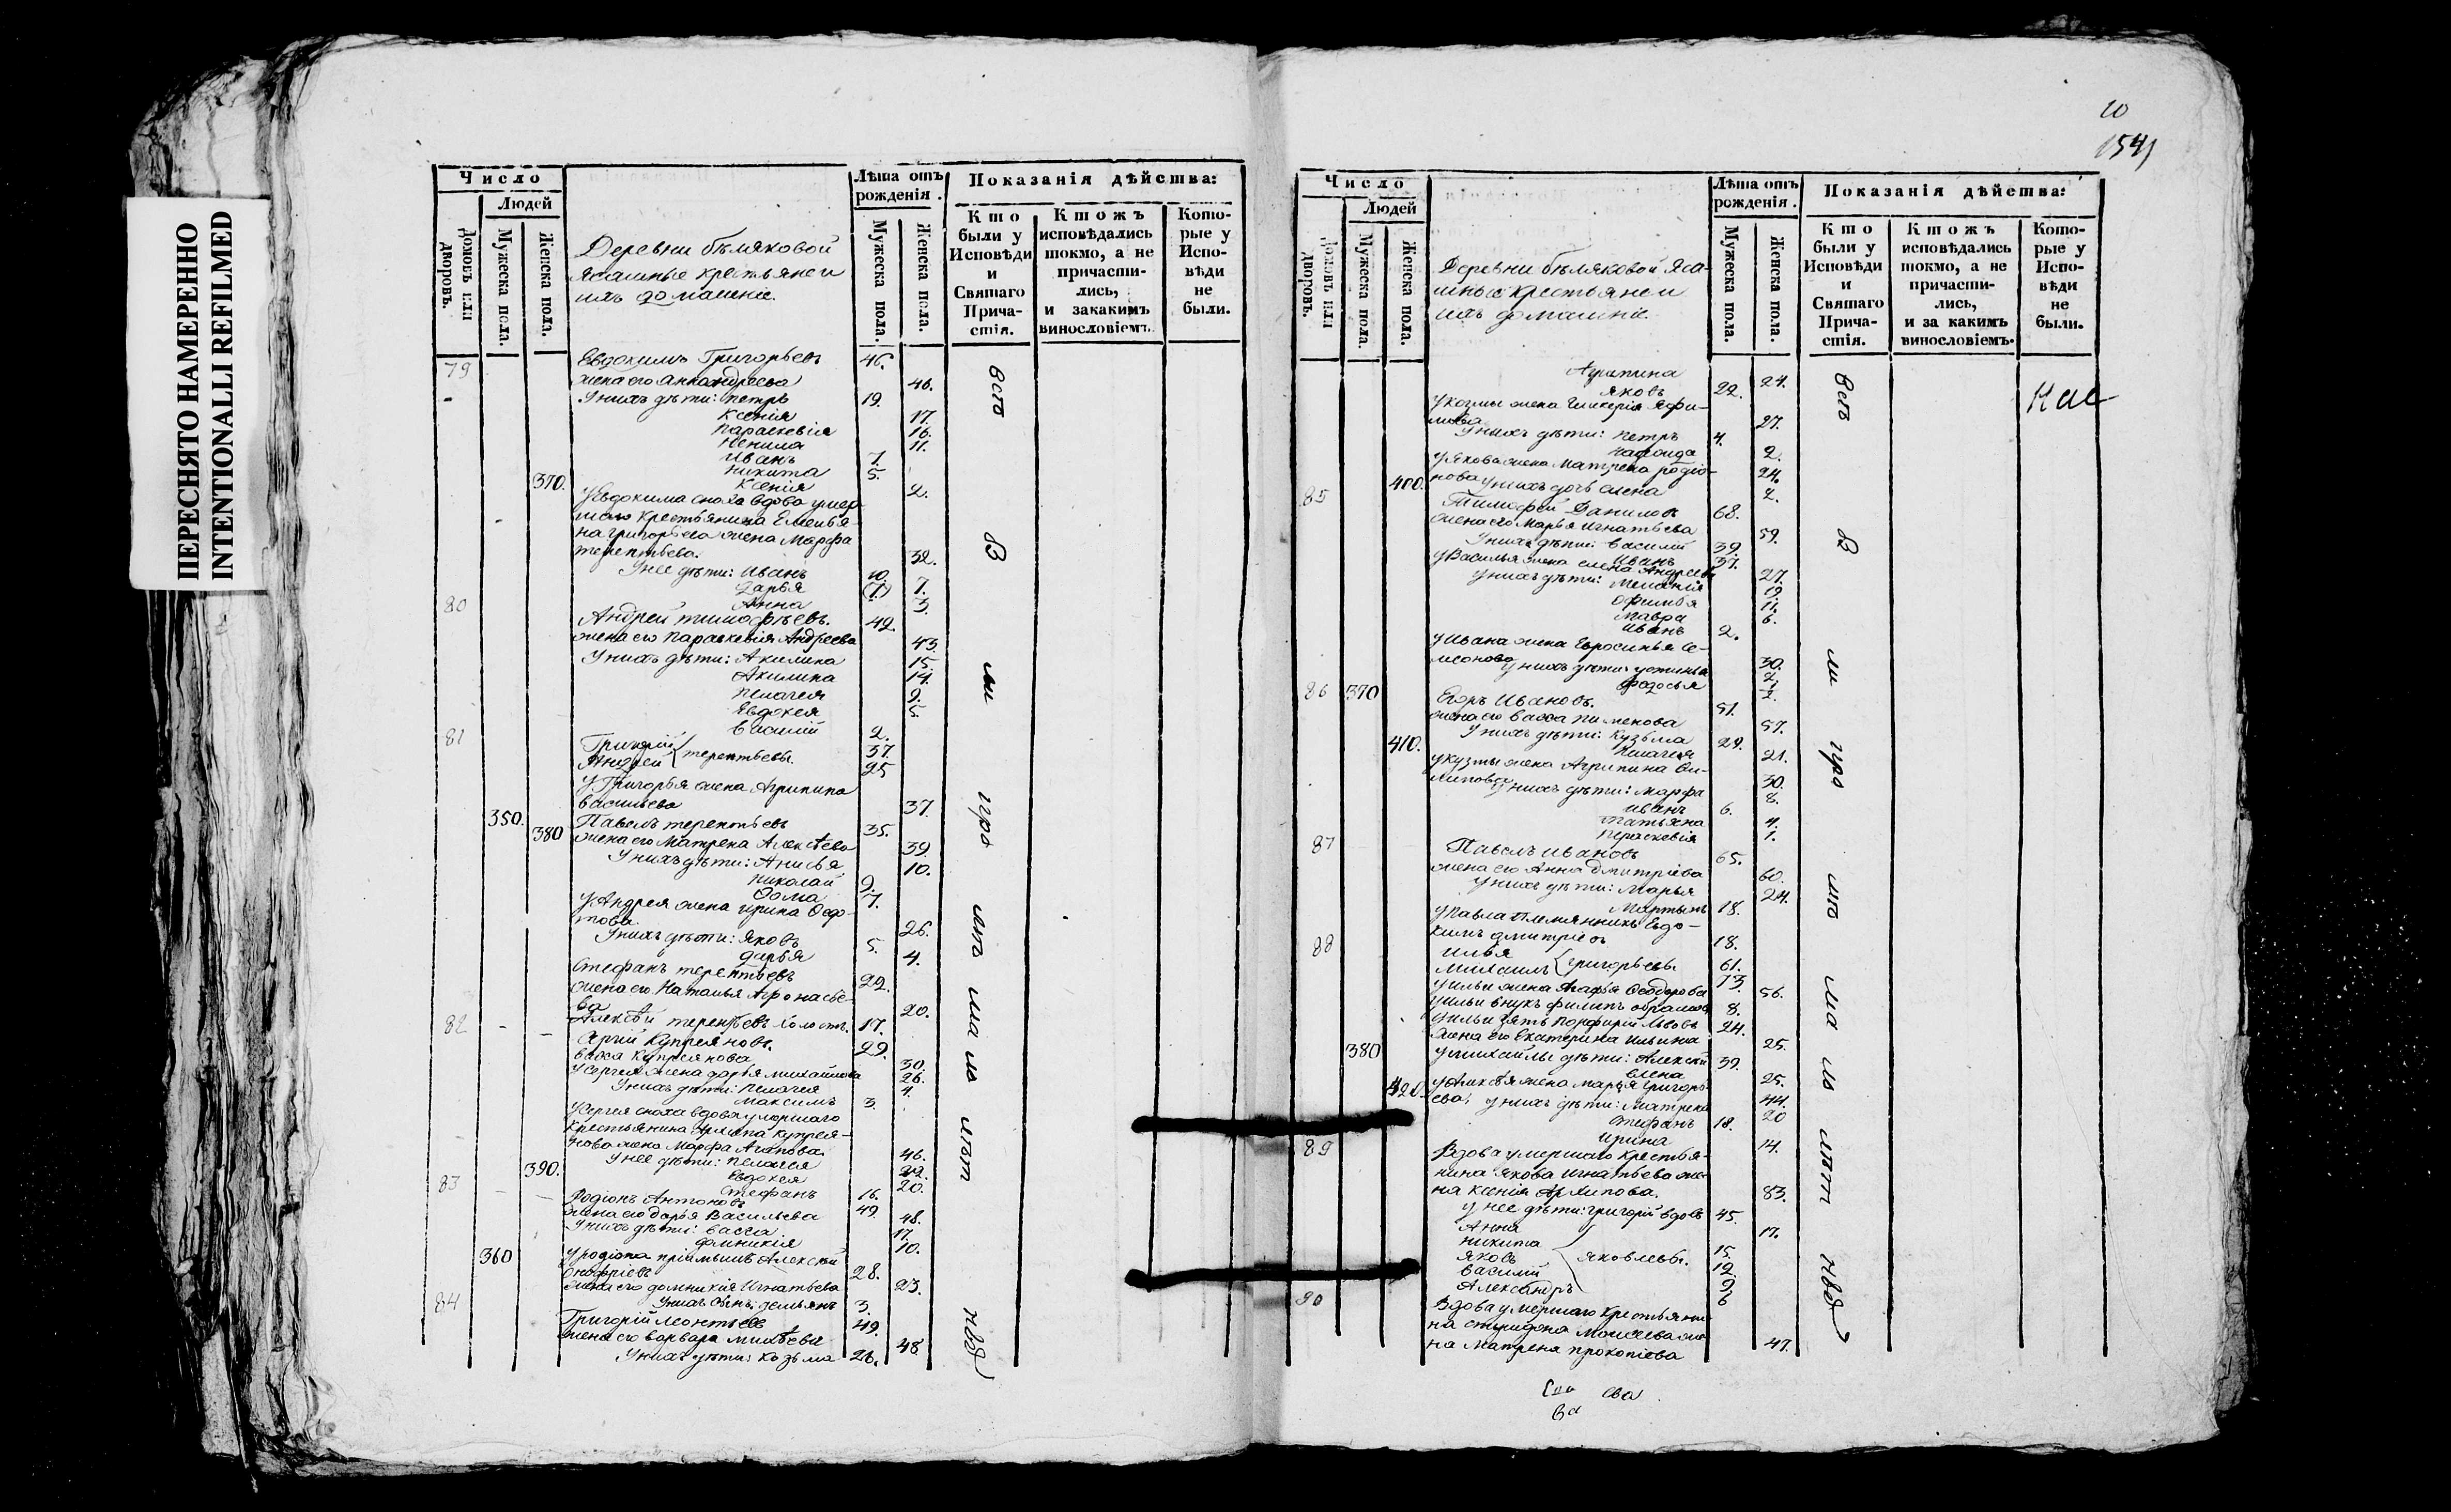 ПЕРЕСНЯТО НАМЕРЕННО
INTENTIONALLI REFILMED
Число
Людей
Домовъ или дворовъ.
Мужеска пола.
Женска пола.
Деревни бѣляковой
ясашные крестьяне и
ихъ домашніе.
Лѣта отъ рожденія.
Мужеска пола.
Женска пола.
Показанія дѣйства:
Кто были у Исповѣди и Святаго Причастія.
Ктожъ исповѣдались токмо, а не причастились, и закакимъ винословіемъ
Которые у Исповѣди не были.
79 Евдокимъ Григорьевъ 46.
жена его Анна Андреева 46.
У нихъ дѣти: Петръ 19.
Ксенія 17.
Параскевія 16.
Ненила 11.
Иванъ 7.
Никита 5.
370. Ксенія 2.
У Евдокима сноха вдова умер-
шаго крестьянина Емелья-
на Григорьева жена Марфа
терентьева. 32.
У нее дѣти: Иванъ 10.
Дарья (7) 7.
Анна 3.
80 Андрей тимофѣевъ. 42.
жена его Параскевія Андреева 43.
У нихъ дѣти: Акилина 15.
Акилина 14.
Пелагея 9.
Евдокея 5.
Василій 2.
81 Григорій 37.
Андрей терентьевы. 25
У Григорья жена Агрипина
васильева 37.
350. Павелъ терентьевъ 35.
380 жена его Матрена Алексѣева 39.
У нихъ дѣти: Анисья 10.
Николай 9.
Ѳома 7.
У Андрея жена ирина Ѳедо-
това 26.
У нихъ дѣти: Яковъ 5.
дарья 4.
Стефанъ терентьевъ 22.
жена его Наталья Афонасье-
ва 20.
Алексѣй терентьевъ холостъ. 17.
82 Сергій Купреяновъ. 29.
васса Купреянова 30.
У Сергея жена дарья михайлова 26.
У нихъ дѣти: Пелагея 4.
Максимъ 3.
У Сергея сноха вдова умершаго
крестьянина Архипа Купрея-
нова жена Марфа Агапова. 46.
У нее дѣти: Пелагея 22.
390. Евдокея 20.
Стефанъ 16.
83 Родіонъ Антоновъ 49.
жена его Дарья Васильева 48.
У нихъ дѣти: васса 17.
домникія 10.
360 У родіона пріимышъ Алексѣй
Онофріевъ 28.
жена его домникія Игнатьева 23.
У нихъ сынъ: демьянъ 3.
84 Григорій Леонтьевъ 49.
жена его варвара михѣева 48
У нихъ дѣти: Козьма 26.
всѣ
В
ли
10
1541
Число
Людей
Домовъ или дворовъ.
Мужеска пола.
Женска пола.
Деревни бѣляковой яса-
шные крестьяне и
ихъ домашніе.
Лѣта отъ рожденія.
Мужеска пола.
Женска пола.
Показанія дѣйства:
Кто были у Исповѣди и Святаго Причастія.
Ктожъ исповѣдались токмо, а не причастились, и за какимъ винословіемъ.
Которые у Исповѣди не были.
Агрипина 24.
Яковъ 22.
У козмы жена Гликерія Яфи-
мова 27.
У нихъ дѣти: петръ 4.
2.
У Якова жена Матрена родіо- 24.
400. нова У нихъ дочь елена 2.
85 Тимофей Даниловъ 68.
жена его Марья Игнатьева 59.
У нихъ дѣти: василій 39.
Иванъ 37.
У Василья жена елена Андреева 27.
У нихъ дѣти: Меланія 19.
Офимья 11.
Мавра 6.
Иванъ 2.
У Ивана жена Евросинья Се-
меонова 30.
У нихъ дѣти: устинья 7.
Федосья 2.
86 370 Егоръ Ивановъ. 51.
жена его васса пименова 57.
У нихъ дѣти: Кузьма 29.
410. Пелагея 21.
У кузмы жена Агрипина Фи-
липова 30.
У нихъ дѣти: Марфа 8.
Иванъ 6.
татьяна 4.
Перасковія 1.
87 Павелъ ивановъ 65.
жена его Анна дмитріева 60.
У нихъ дѣти: Марья 24.
Мартынъ 18.
У павла племянникъ Евдо-
кимъ дмитріевъ 18.
88 Илья 61.
Михаилъ Григорьевы. 73.
У ильи жена Агафья Ѳеодорова 56.
У ильи внукъ филипъ 8.
У ильи зять Порфирій Львовъ 24.
жена его Екатерина Ильина 25.
380 У михайлы дѣти: Алексѣй 39.
елена 25.
420. У Алексѣя жена марья григорь-
ева, 44.
У нихъ дѣти: Матрена 20
Стефанъ 18.
Ирина 14.
89 Вдова умершаго крестья-
нина Якова Игнатьева же-
на Ксенія Архипова. 83.
У нее дѣти: григорій вдовъ 45.
Анна 17.
никита 15.
Яковъ Яковлевы. 12.
василій 9.
Александръ 6
90 Вдова умершаго крестьяни-
на спиридона Моисеева же-
на Матрена прокопіева 47.
всѣ
В
ли